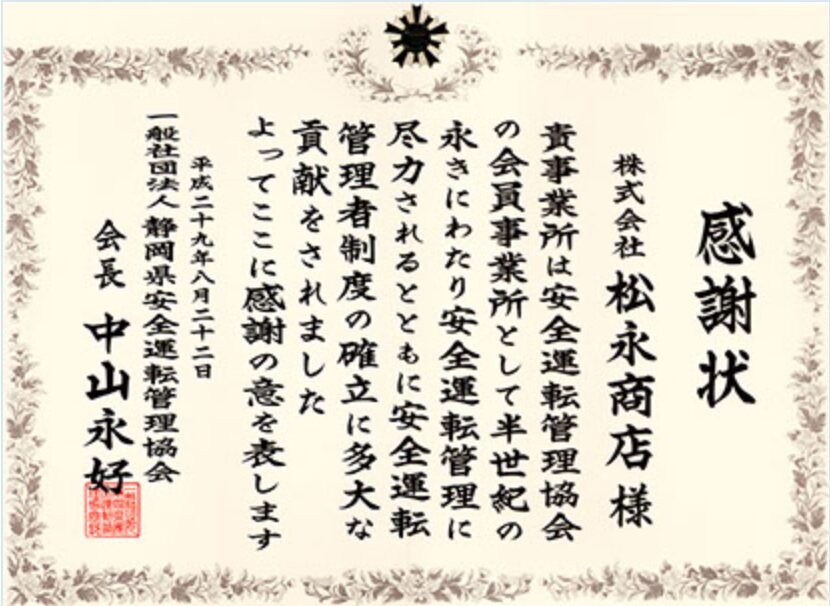 感謝状
株式会社 松永商店 様
貴事業所は安全運転管理協会
の会員事業所として半世紀の
永きにわたり安全運転管理に
尽力されるとともに安全運転
管理者制度の確立に多大な
貢献をされました
よってここに感謝の意を表します
平成二十九年八月二十二日
一般社団法人 静岡県安全運転管理協会
会長 中山永好